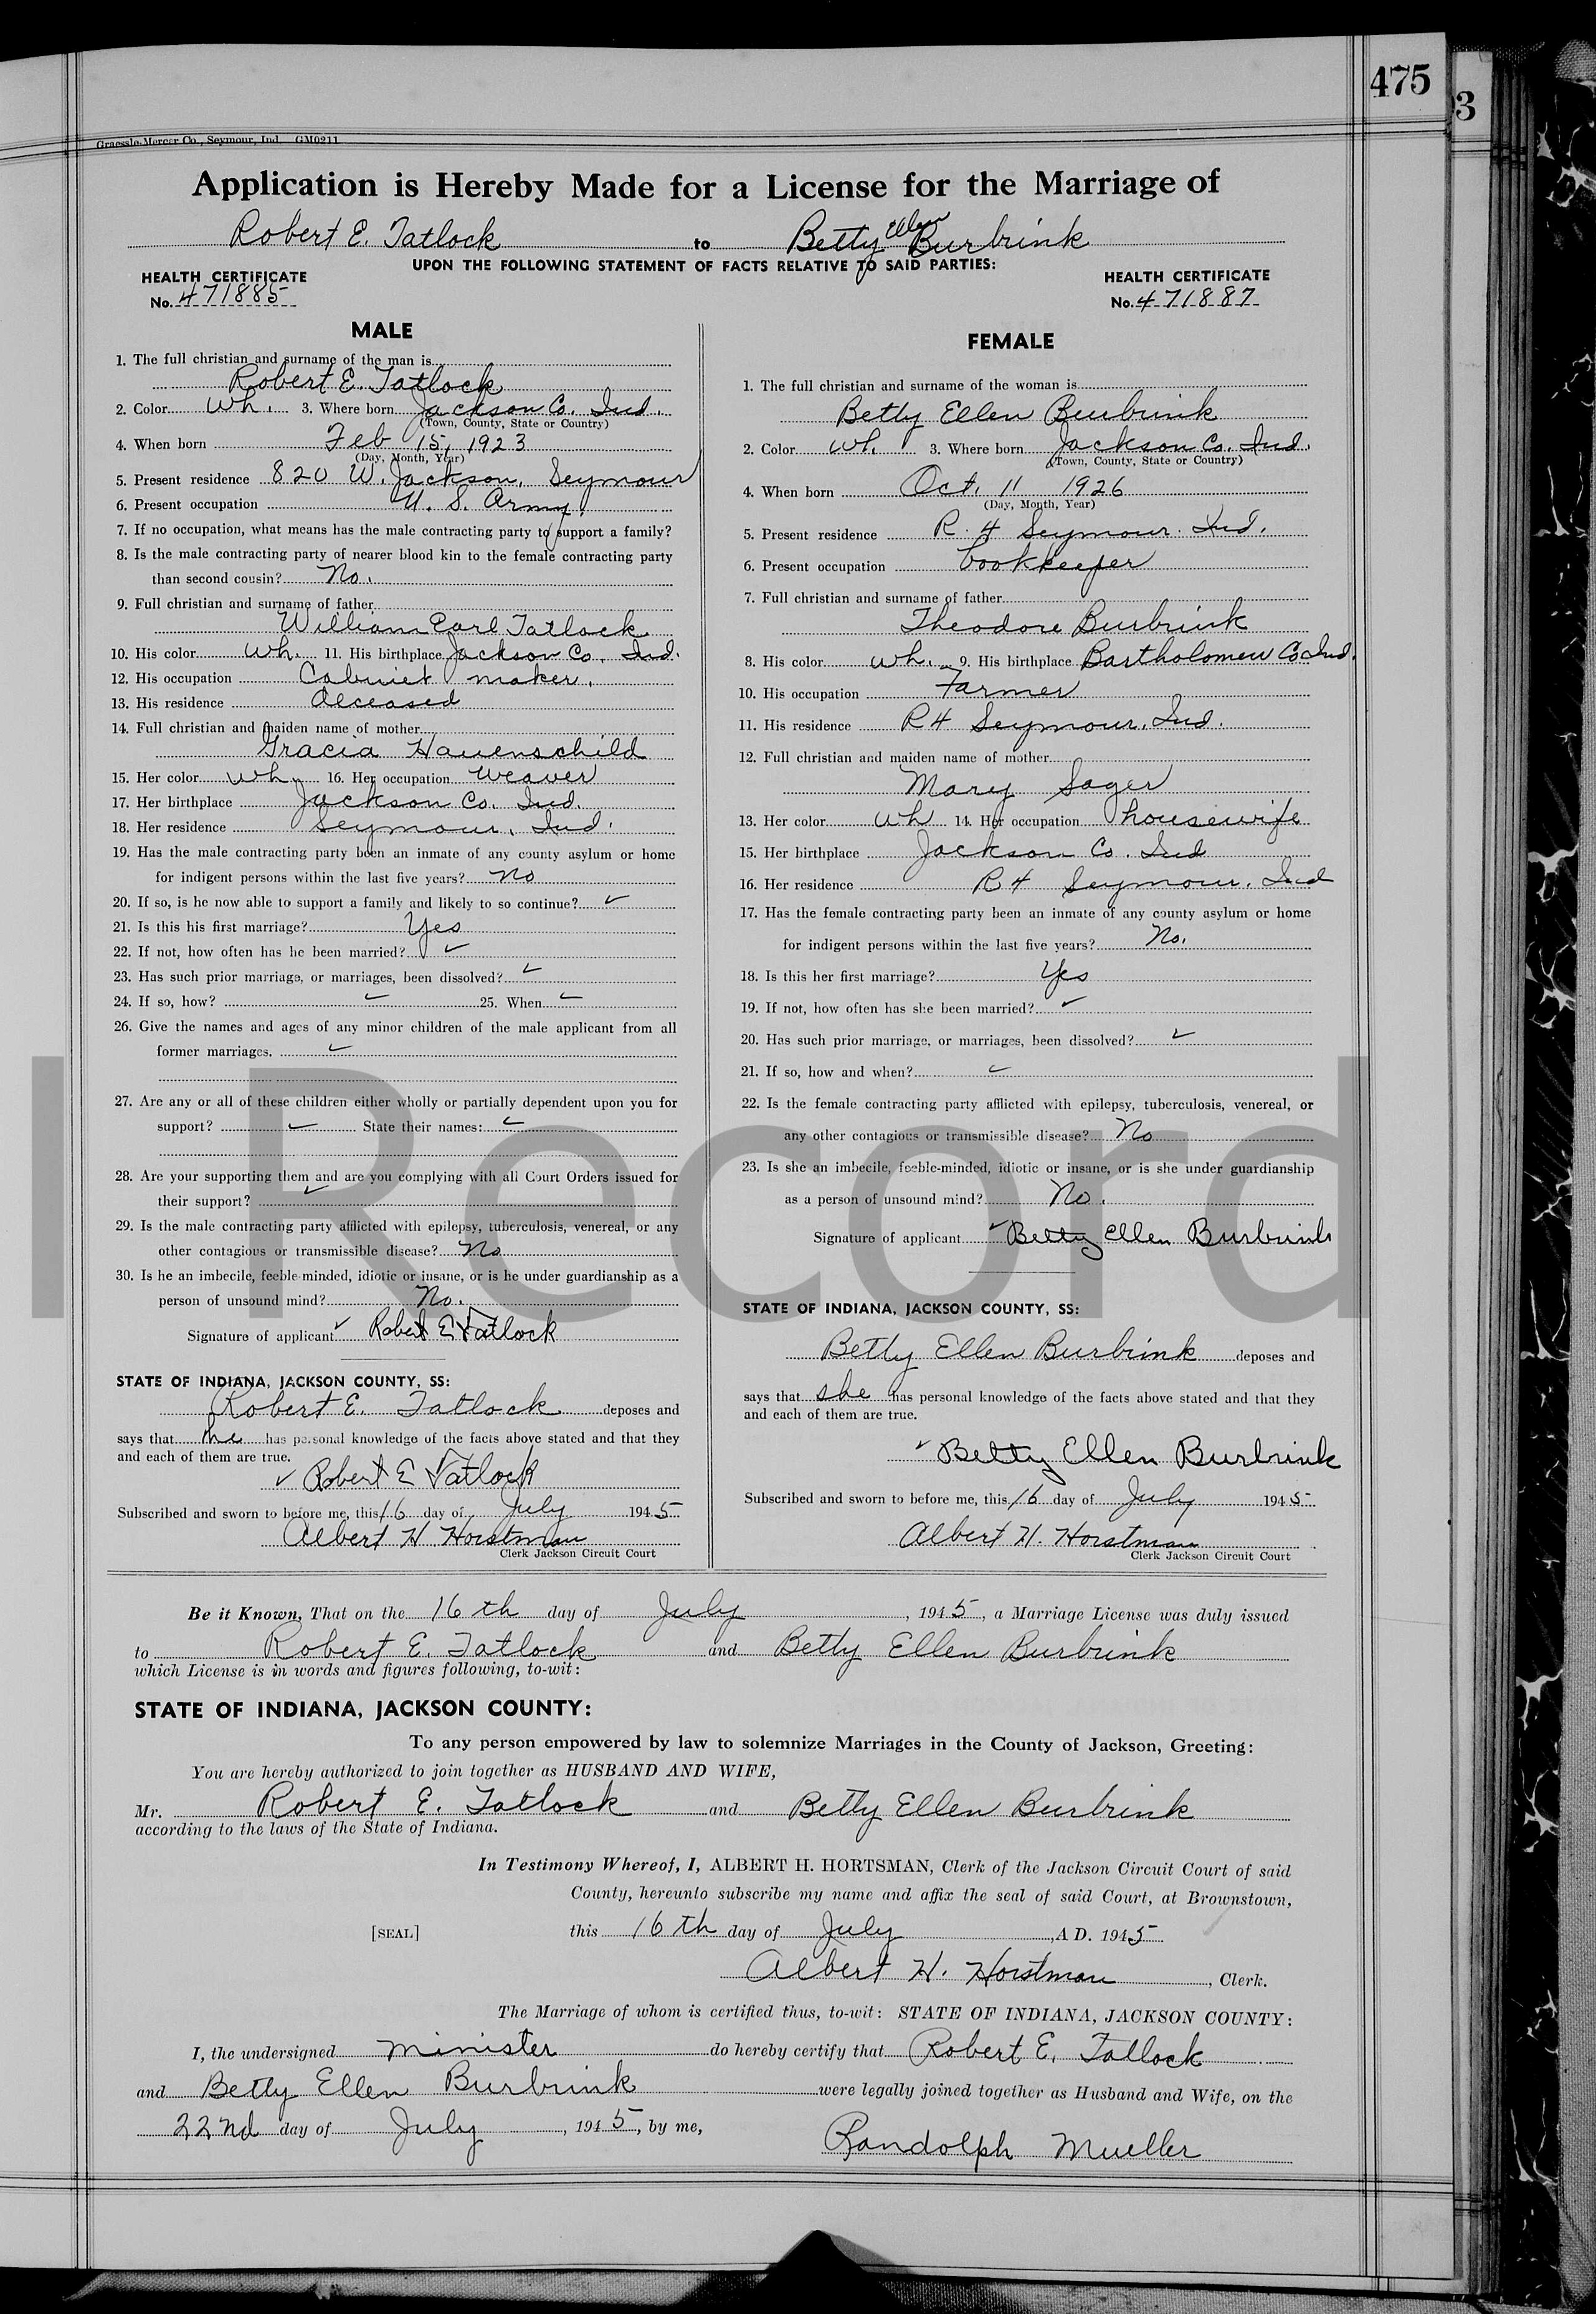 475
3
Graessle-Mercer Co., Seymour, Ind. GM0211
Application is Hereby Made for a License for the Marriage of
Robert E. Tatlock to Betty Ellen Burbrink
UPON THE FOLLOWING STATEMENT OF FACTS RELATIVE TO SAID PARTIES:
HEALTH CERTIFICATE
No. 471885
HEALTH CERTIFICATE
No. 471887
MALE
1. The full christian and surname of the man is
Robert E. Tatlock
2. Color Wh. 3. Where born Jackson Co. Ind.
(Town, County, State or Country)
4. When born Feb 15, 1923
(Day, Month, Year)
5. Present residence 820 W. Jackson, Seymour
6. Present occupation U. S. Army.
7. If no occupation, what means has the male contracting party to support a family?
8. Is the male contracting party of nearer blood kin to the female contracting party
than second cousin? No.
9. Full christian and surname of father
William Earl Tatlock
10. His color Wh. 11. His birthplace Jackson Co. Ind.
12. His occupation Cabinet maker.
13. His residence deceased
14. Full christian and maiden name of mother
Gracia Hauenschild
15. Her color Wh. 16. Her occupation Weaver
17. Her birthplace Jackson Co. Ind.
18. Her residence Seymour, Ind.
19. Has the male contracting party been an inmate of any county asylum or home
for indigent persons within the last five years? No
20. If so, is he now able to support a family and likely to so continue? ✓
21. Is this his first marriage? Yes
22. If not, how often has he been married? ✓
23. Has such prior marriage, or marriages, been dissolved? ✓
24. If so, how? ✓ 25. When ✓
26. Give the names and ages of any minor children of the male applicant from all
former marriages. ✓
27. Are any or all of these children either wholly or partially dependent upon you for
support? ✓ State their names: ✓
28. Are your supporting them and are you complying with all Court Orders issued for
their support? ✓
29. Is the male contracting party afflicted with epilepsy, tuberculosis, venereal, or any
other contagious or transmissible disease? No
30. Is he an imbecile, feeble-minded, idiotic or insane, or is he under guardianship as a
person of unsound mind? No.
Signature of applicant ✓ Robert E Tatlock
STATE OF INDIANA, JACKSON COUNTY, SS:
Robert E. Tatlock deposes and
says that he has personal knowledge of the facts above stated and that they
and each of them are true.
✓ Robert E Tatlock
Subscribed and sworn to before me, this 16 day of July 1945
Albert H Horstman
Clerk Jackson Circuit Court
FEMALE
1. The full christian and surname of the woman is
Betty Ellen Burbrink
2. Color Wh. 3. Where born Jackson Co. Ind.
(Town, County, State or Country)
4. When born Oct. 11 1926
(Day, Month, Year)
5. Present residence R. 4 Seymour Ind.
6. Present occupation bookkeeper
7. Full christian and surname of father
Theodore Burbrink
8. His color Wh. 9. His birthplace Bartholomew Co Ind.
10. His occupation Farmer
11. His residence R4 Seymour, Ind.
12. Full christian and maiden name of mother
Mary Sager
13. Her color Wh 14. Her occupation housewife
15. Her birthplace Jackson Co. Ind
16. Her residence R4 Seymour, Ind
17. Has the female contracting party been an inmate of any county asylum or home
for indigent persons within the last five years? No.
18. Is this her first marriage? Yes
19. If not, how often has she been married? ✓
20. Has such prior marriage, or marriages, been dissolved? ✓
21. If so, how and when? ✓
22. Is the female contracting party afflicted with epilepsy, tuberculosis, venereal, or
any other contagious or transmissible disease? No
23. Is she an imbecile, feeble-minded, idiotic or insane, or is she under guardianship
as a person of unsound mind? No.
Signature of applicant ✓ Betty Ellen Burbrink
STATE OF INDIANA, JACKSON COUNTY, SS:
Betty Ellen Burbrink deposes and
says that she has personal knowledge of the facts above stated and that they
and each of them are true.
✓ Betty Ellen Burbrink
Subscribed and sworn to before me, this 16 day of July 1945
Albert H. Horstman
Clerk Jackson Circuit Court
Record
Be it Known, That on the 16th day of July, 1945, a Marriage License was duly issued
to Robert E. Tatlock and Betty Ellen Burbrink
which License is in words and figures following, to-wit:
STATE OF INDIANA, JACKSON COUNTY:
To any person empowered by law to solemnize Marriages in the County of Jackson, Greeting:
You are hereby authorized to join together as HUSBAND AND WIFE,
Mr. Robert E. Tatlock and Betty Ellen Burbrink
according to the laws of the State of Indiana.
In Testimony Whereof, I, ALBERT H. HORTSMAN, Clerk of the Jackson Circuit Court of said
County, hereunto subscribe my name and affix the seal of said Court, at Brownstown,
[SEAL] this 16th day of July, A D. 1945
Albert H. Horstman, Clerk.
The Marriage of whom is certified thus, to-wit: STATE OF INDIANA, JACKSON COUNTY:
I, the undersigned minister do hereby certify that Robert E. Tatlock
and Betty Ellen Burbrink were legally joined together as Husband and Wife, on the
22nd day of July, 1945, by me,
Randolph Mueller